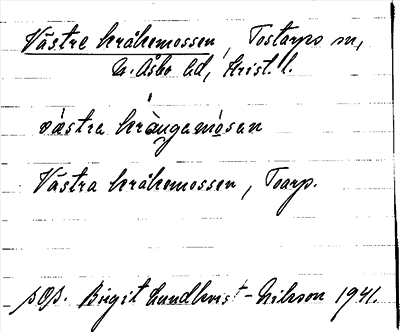 Västre kråkemossen, Tostarps sn,
N. Åsbo hd, Krist. l.
västra krångamosan
Västra kråkemossen, Toarp.
sOp. Birgit Lundkvist-Nilsson 1941.